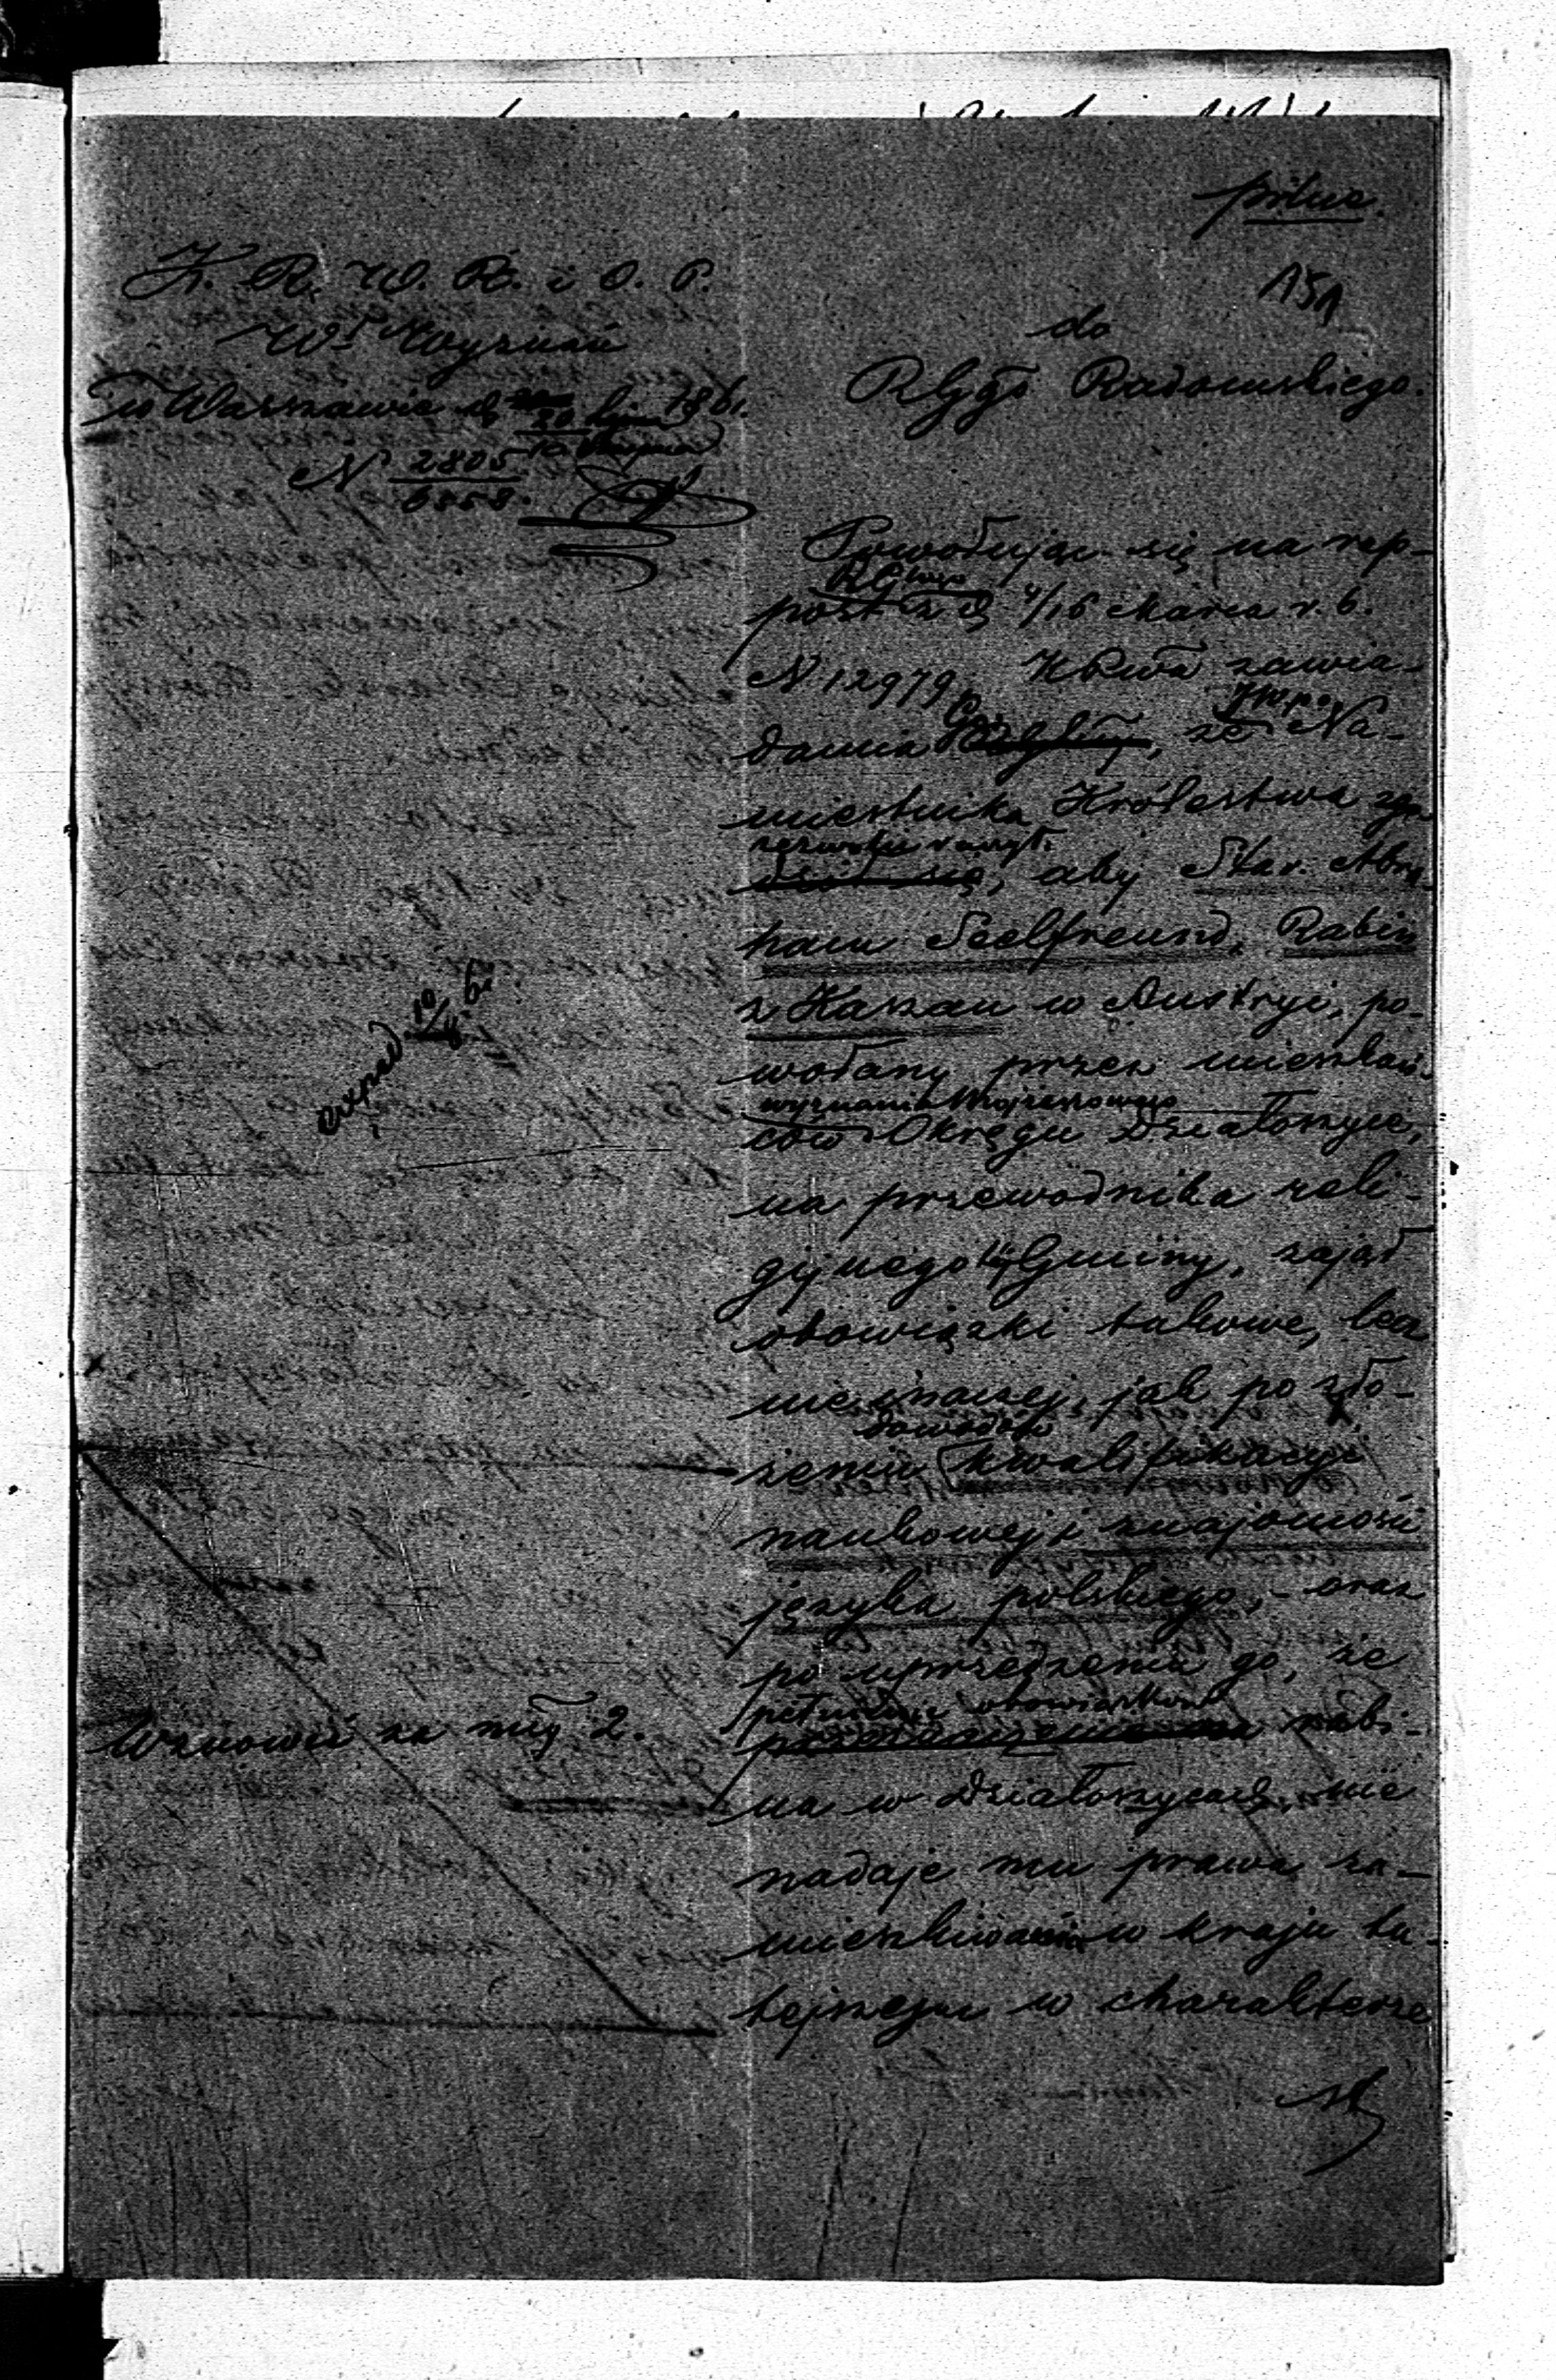 pilne.
151
K. R. W. R. i O. P.
Wł Wyznań
w Warszawie d. 1861.
10 Sierpnia
N 2805
6558.
do
RGgo Radomskiego.
Powołując się na rap-
RGwego
port z d. 4/16 Marca r. b.
N 12979, KRwa zawia-
damia że JW. po. Na-
miestnika Królestwa
zezwolić raczył, aby Star. Abra-
ham Seelfreund, Rabin
z Kaszau w Austryi, po-
wołany przez mieszkań-
wyznania Mojżeszowego
ców Okręgu Działoszyce,
na przewodnika reli-
gijnego téj Gminy, zajął
obowiązki takowe, lecz
nieinaczej, jak po zło-
dowodów
żeniu kwalifikacyi
naukowej i znajomości
języka polskiego, - oraz
po uprzedzeniu go, że
pełnienie obowiązków
rabi-
na w Działoszycach, nie
nadaje mu prawa za-
mieszkiwania w kraju tu-
tejszym w charakterze
exped 10/8 61.
Wznowić za mcy 2.